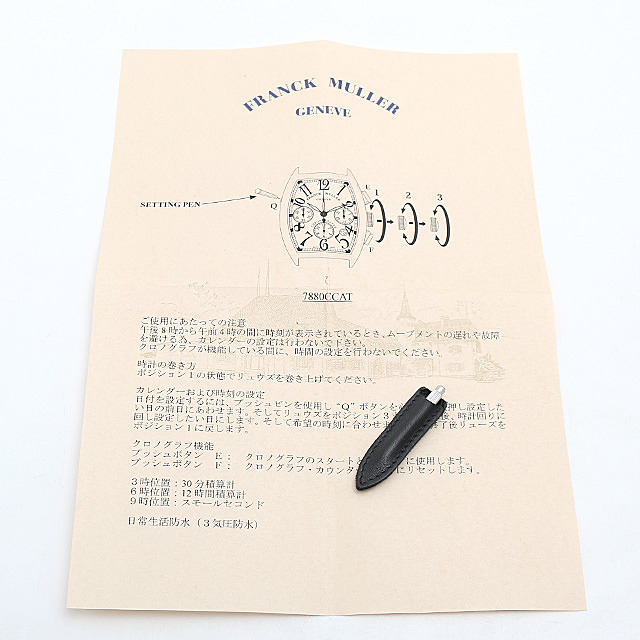 FRANCK MULLER
GENEVE
SETTING PEN
Q
E
F
1 2 3
7880CCAT
ご使用にあたっての注意
午後8時から午前4時の間に時刻が表示されているとき、ムーブメントの遅れや故障
を避ける為、カレンダーの設定は行わないで下さい。
クロノグラフが機能している間に、時間の設定を行わないでください。
時計の巻き方
ポジション1の状態でリュウズを巻き上げてください。
カレンダーおよび時刻の設定
日付を設定するには、プッシュピンを使用し“Q”ボタンを 押し設定した
い日の前日にあわせます。そしてリュウズをポジション3 後、時計回りに
回し設定したい日にします。そして希望の時刻に合わせます 了後リューズを
ポジション1に戻します。
クロノグラフ機能
プッシュボタン E: クロノグラフのスタートと に使用します。
プッシュボタン F: クロノグラフ・カウンタ にリセットします。
3時位置:30分積算計
6時位置:12時間積算計
9時位置:スモールセコンド
日常生活防水(3気圧防水)